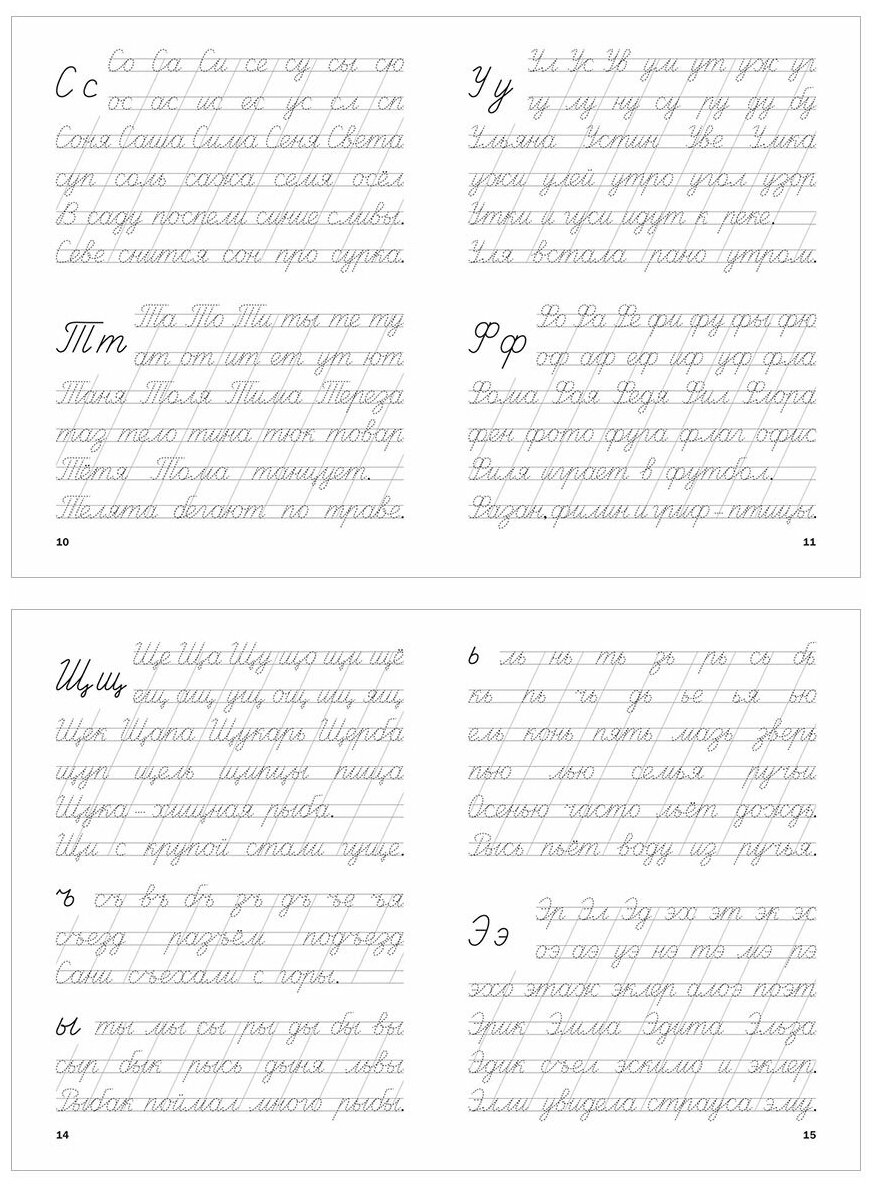 С с
Со Са Си се су сы сю
ос ас ис ес ус сл сп
Соня Саша Сима Сеня Света
суп соль сажа семя осёл
В саду поспели синие сливы.
Севе снится сон про сурка.
Т т
Та То Ти ты те ту
ат от ит ет ут ют
Таня Толя Тима Тереза
таз тело тина тюк товар
Тётя Тома танцует.
Телята бегают по траве.
10
У у
Ул Ус Ув ум ут уж уг
гу лу ну су ру ду бу
Ульяна Устин Уве Умка
ужи улей утро угол узор
Утки и гуси идут к реке.
Уля встала рано утром.
Ф ф
Фо Фа Фе фи фу фы фю
оф аф еф иф уф фла
Фома Фая Федя Фил Флора
фен фото фуга флаг офис
Филя играет в футбол.
Фазан, филин и гриф – птицы.
11
Щ щ
Ще Ща Щу що щи щё
ещ ащ ущ ощ ищ ящ
Щек Щапа Щукарь Щерба
щуп щель щипцы пища
Щука – хищная рыба.
Щи с крупой стали гуще.
ъ
съ въ бъ зъ дъ ъе ъя
съезд разъём подъезд
Сани съехали с горы.
ы
ты мы сы ры ды бы вы
сыр бык рысь дыня львы
Рыбак поймал много рыбы.
14
ь
ль нь ть зь рь сь бь
кь пь чь дь ье ья ью
ель конь пять мазь зверь
пью лью семья ручьи
Осенью часто льёт дождь.
Рысь пьёт воду из ручья.
Э э
Эр Эл Эд эх эт эк эс
оэ аэ уэ нэ тэ мэ рэ
эхо этаж эклер алоэ поэт
Эрик Эмма Эдита Эльза
Эдик съел эскимо и эклер.
Элли увидела страуса эму.
15